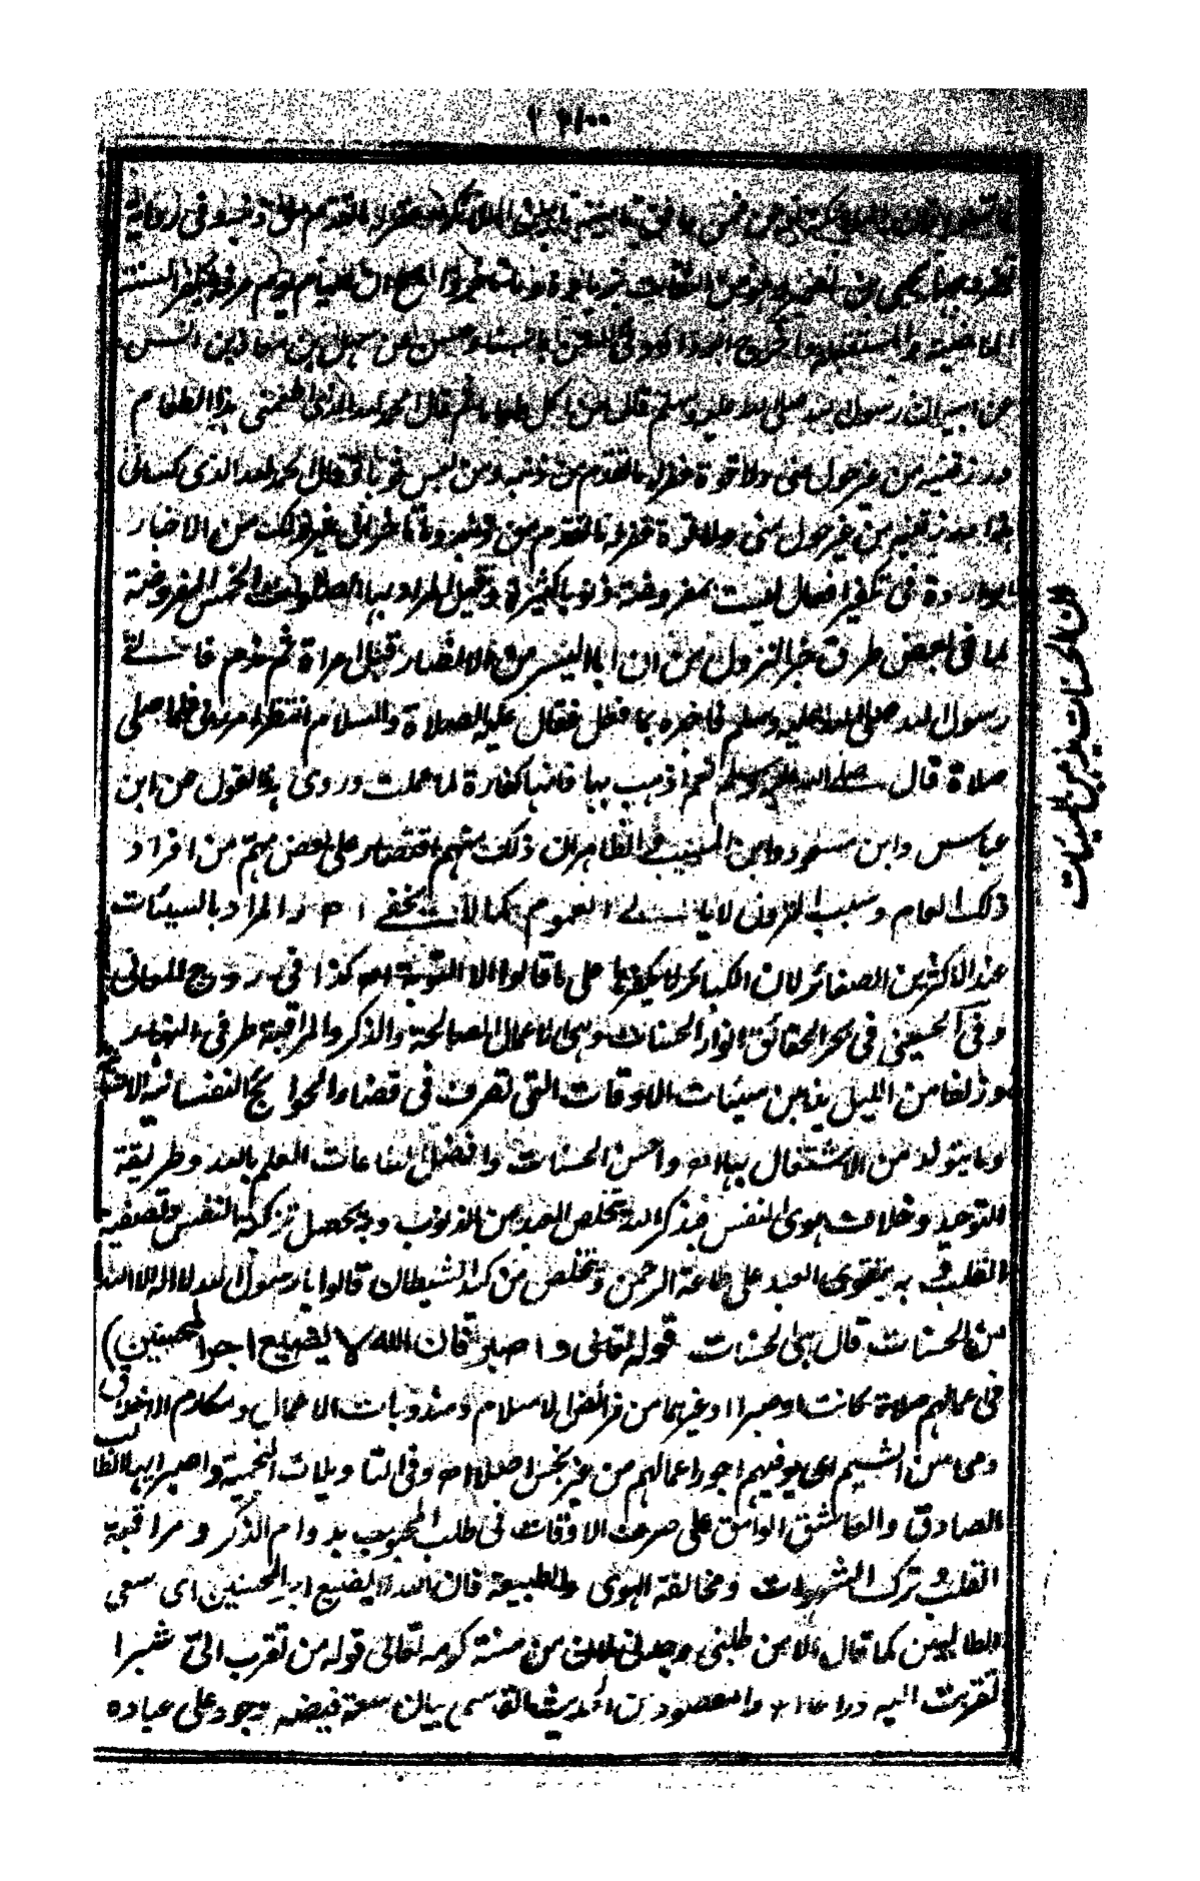 فان الملائكة تؤمن فمن وافق تأمينه تأمين الملائكة غفر له ما تقدم من ذنبه وفى رواية
الماضية والمستقبلة وما اخرج ابو داود فى السنن باسناد حسن عن سهل بن معاذ بن انس
عن ابيه ان رسول الله صلى الله عليه وسلم قال من اكل طعاما ثم قال الحمد لله الذى اطعمنى هذا الطعام
ورزقنيه من غير حول منى ولا قوة غفر له ما تقدم من ذنبه ومن لبس ثوبا فقال الحمد لله الذى كسانى
هذا ورزقنيه من غير حول منى ولا قوة غفر له ما تقدم من ذنبه وما تأخر الى غير ذلك من الاخبار
الواردة فى تكفير افعال ليست بمفروضة ذنوبا كثيرة وقيل المراد بها الصلوات الخمس المفروضة
لما فى بعض طرق خبر النزول من ان ابا اليسر من الانصار قبل امرأة ثم ندم فاتى
رسول الله صلى الله عليه وسلم فاخبره بما فعل فقال عليه الصلاة والسلام انتظر امر ربى فلما صلى
صلاة قال صلى الله عليه وسلم نعم اذهب بها فانها كفارة لما عملت وروى هذا القول عن ابن
عباس وابن مسعود وابن المسيب والظاهر ان ذلك منهم اقتصار على بعض مهم من افراد
ذلك العام وسبب النزول لا يأبى العموم كما لا يخفى اه والمراد بالسيئات
عند الاكثرين الصغائر لان الكبائر لا يكفرها على ما قالوا الا التوبة اه كذا فى روح المعانى
وفى الحسينى فى بحر الحقائق انوار الحسنات وهى الاعمال الصالحة والذكر والمراقبة طرفى النهار
وزلفا من الليل يذهبن سيئات الاوقات التى تصرف فى قضاء الحوائج النفسانية الانسانية
وما يتولد من الاشتغال بها اه واحسن الحسنات وافضل الطاعات العلم بالله وطريقة
التوحيد وخلاف هوى النفس فبذكر الله يتخلص العبد من الذنوب وبه يحصل تزكية النفس وتصفية
القلب و به يتقوى العبد على طاعة الرحمن ويتخلص من كيد الشيطان قالوا يا رسول الله لا اله الا الله
من الحسنات قال هى الحسنات قوله تعالى واصبر فان الله لا يضيع اجر المحسنين)
فى عمالهم صلاة كانت او صبرا او غيرهما من فرائض الاسلام ومندوبات الاعمال ومكارم الاخلاق
ومحاسن الشيم اى يوفيهم اجور اعمالهم من غير بخس اصلا اه وفى التأويلات النجمية واصبر ايها الطالب
الصادق والعاشق الوامق على صرف الاوقات فى طلب المحبوب بدوام الذكر ومراقبة
القلب وترك الشهوات ومخالفة الهوى والطبيعة فان الله لا يضيع اجر المحسنين اى سعى
الطالبين كما قال الا من طلبنى وجدنى لان من سنة كرمه تعالى قوله من تقرب الى شبرا
تقربت اليه ذراعا اه والمقصود من الحديث القدسى بيان سعة فيضه وجوده على عباده
ان الحسنات يذهبن السيئات